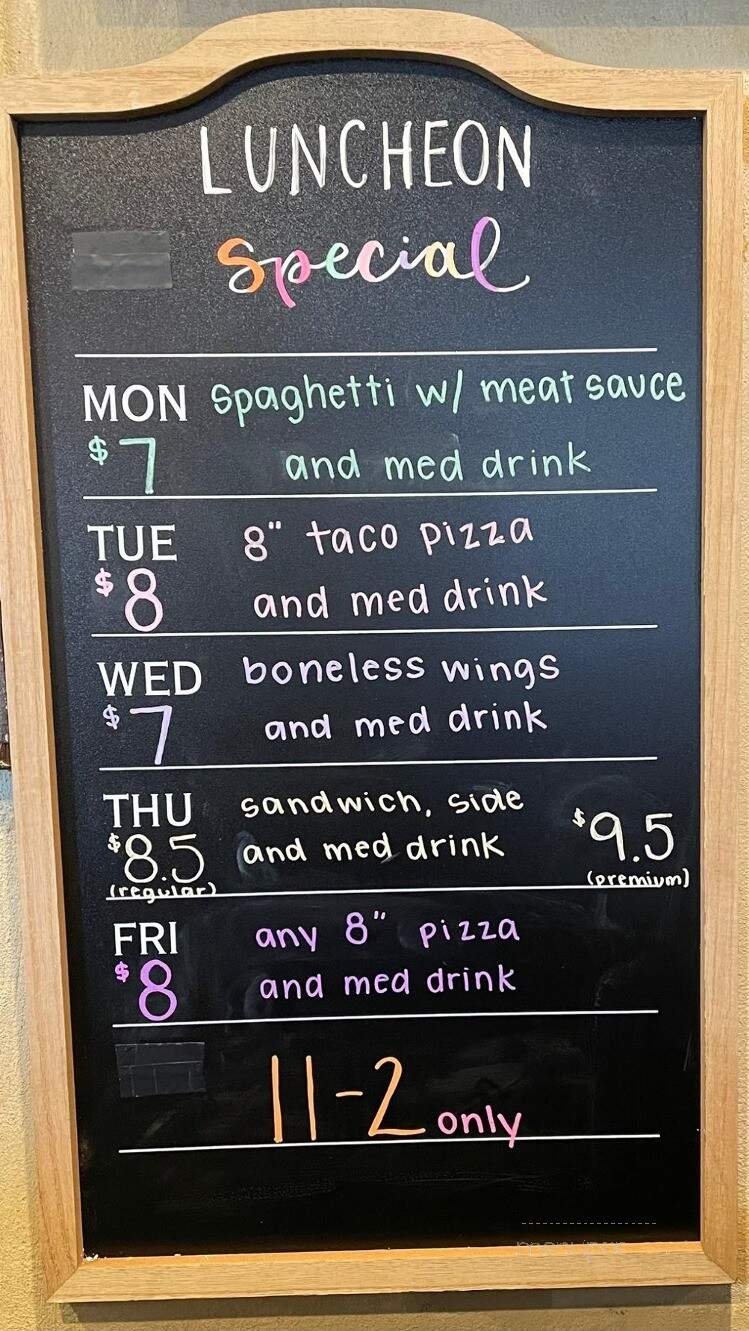 LUNCHEON
special
MON spaghetti w/ meat sauce
$7 and med drink
TUE 8" taco pizza
$8 and med drink
WED boneless wings
$7 and med drink
THU sandwich, side
$8.5 and med drink $9.5
(regular) (premium)
FRI any 8" pizza
$8 and med drink
11-2 only